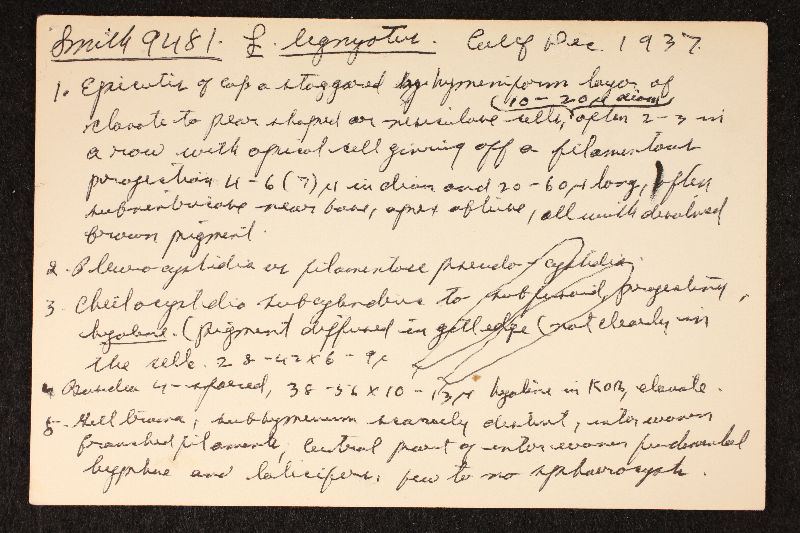 Smith 9481. L. lignyotus. Calif Dec. 1937
1. Epicutis of cap a staggered hymeniform layer of
(10-20 μ diam)
clavate to pear shaped or vesiculose cells, often 2-3 in
a row with apical cell giving off a filamentous
projection 4-6 (7) μ in diam and 20-60 μ long, often
subventricose near base, apex obtuse, all with dissolved
brown pigment
2. Pleurocystidia as filamentose pseudo-cystidia.
3. Cheilocystidia subcylindric to subfusoid, projecting,
hyaline. (pigment diffused in gill edge (not clearly in
the cells. 28-42 x 6-9 μ
4 Basidia 4-spored, 38-56 x 10-13 μ hyaline in KOH, clavate.
5. Gill trama, subhymenium scarcely distinct, interwoven
branched filaments, Central part of interwoven
hyphae and lacticifers; few to no sphaerocysts.